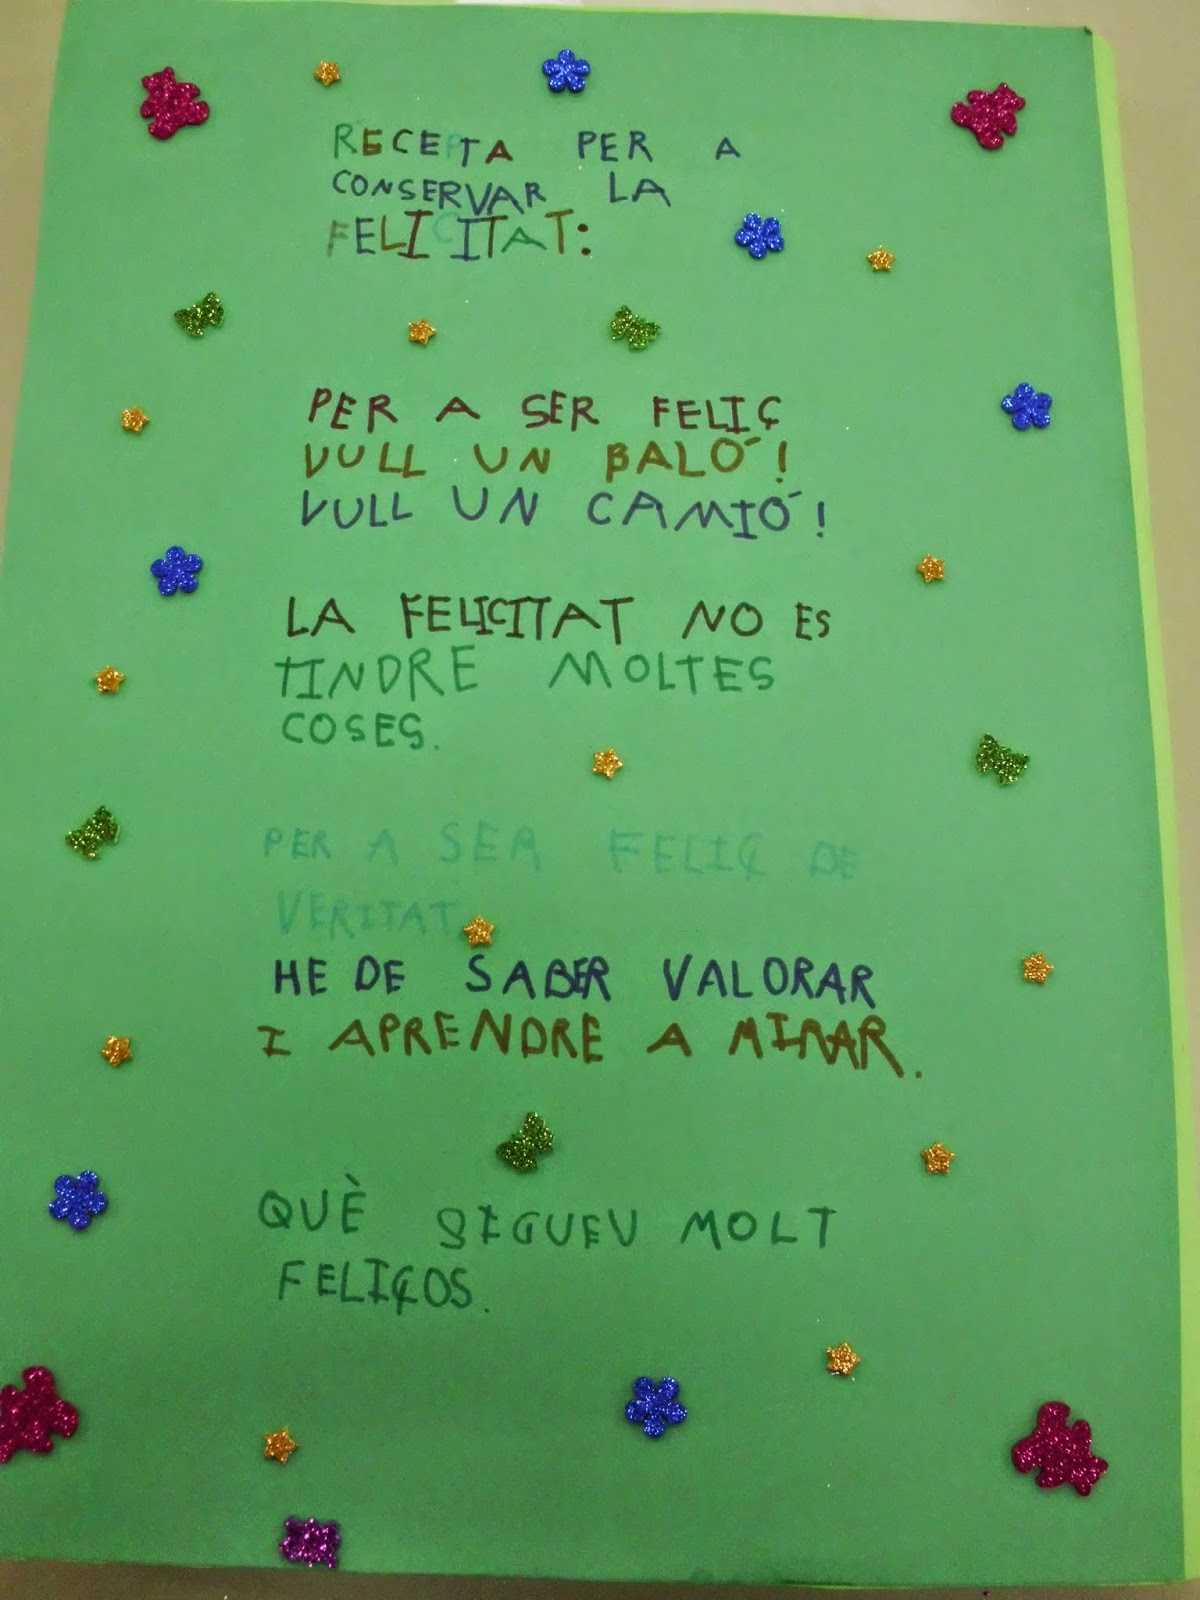 RECEPTA PER A
CONSERVAR LA
FELICITAT:
PER A SER FELIÇ
VULL UN BALÓ!
VULL UN CAMIÓ!
LA FELICITAT NO ES
TINDRE MOLTES
COSES.
PER A SER FELIÇ DE
VERITAT
HE DE SABER VALORAR
I APRENDRE A MIRAR.
QUÈ SIGUEU MOLT
FELIÇOS.